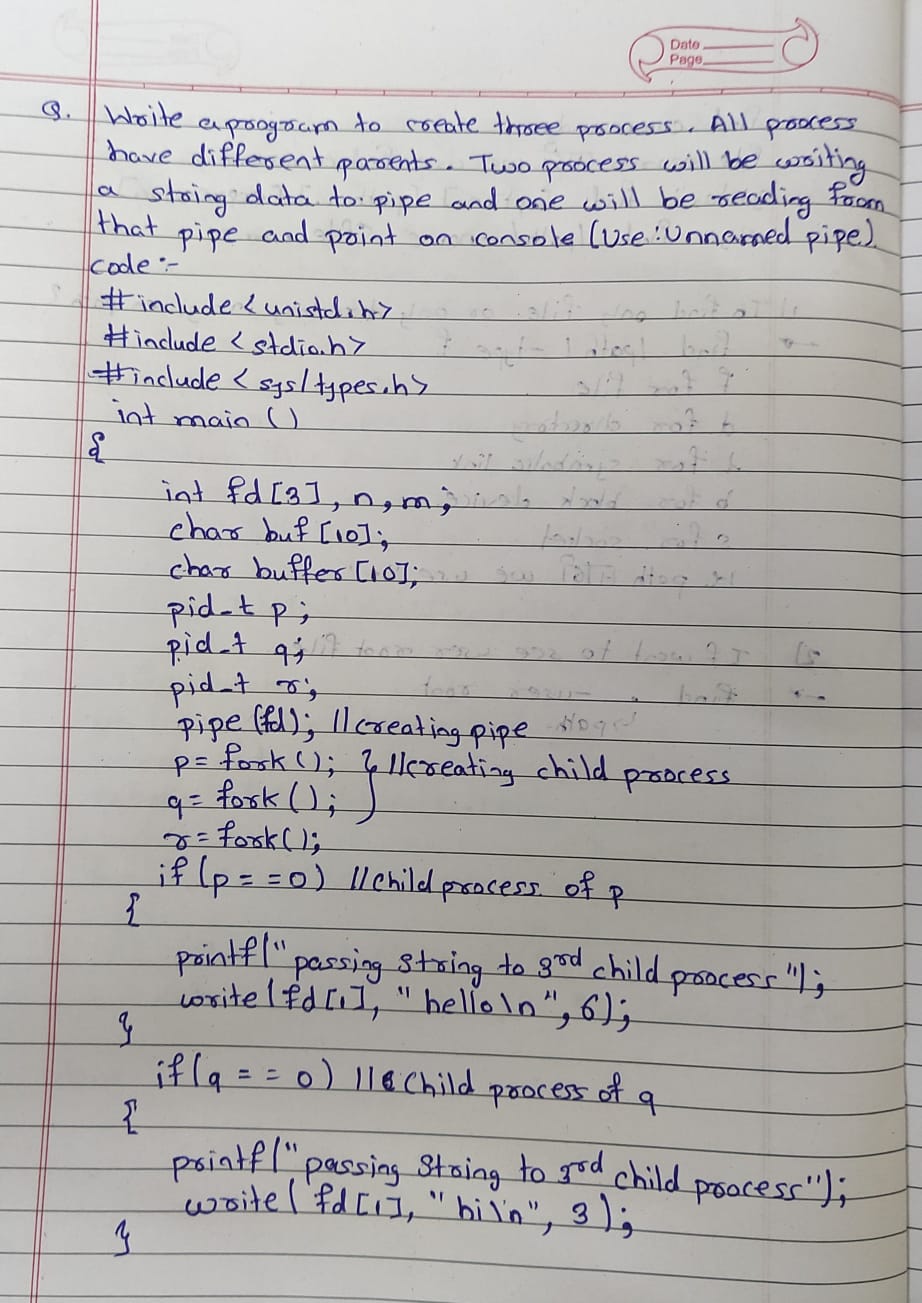 Date
Page
Q. Write a program to create three process. All process
have different parents. Two process will be writing
a string data to pipe and one will be reading from
that pipe and print on console (Use: Unnamed pipe)
code :-
#include <unistd.h>
#include <stdio.h>
#include <sys/types.h>
int main ()
{
int fd [3], n, m;
char buf [10];
char buffer [10];
pid_t p;
pid_t q;
pid_t r;
pipe (fd); // creating pipe
p = fork (); } // creating child process
q = fork ();
r = fork ();
if (p == 0) // child process of p
{
printf (" passing string to 3rd child process ");
write (fd [1], " hello \n ", 6);
}
if (q == 0) // child process of q
{
printf (" passing String to 3rd child process");
write ( fd [1], " hi \n ", 3);
}